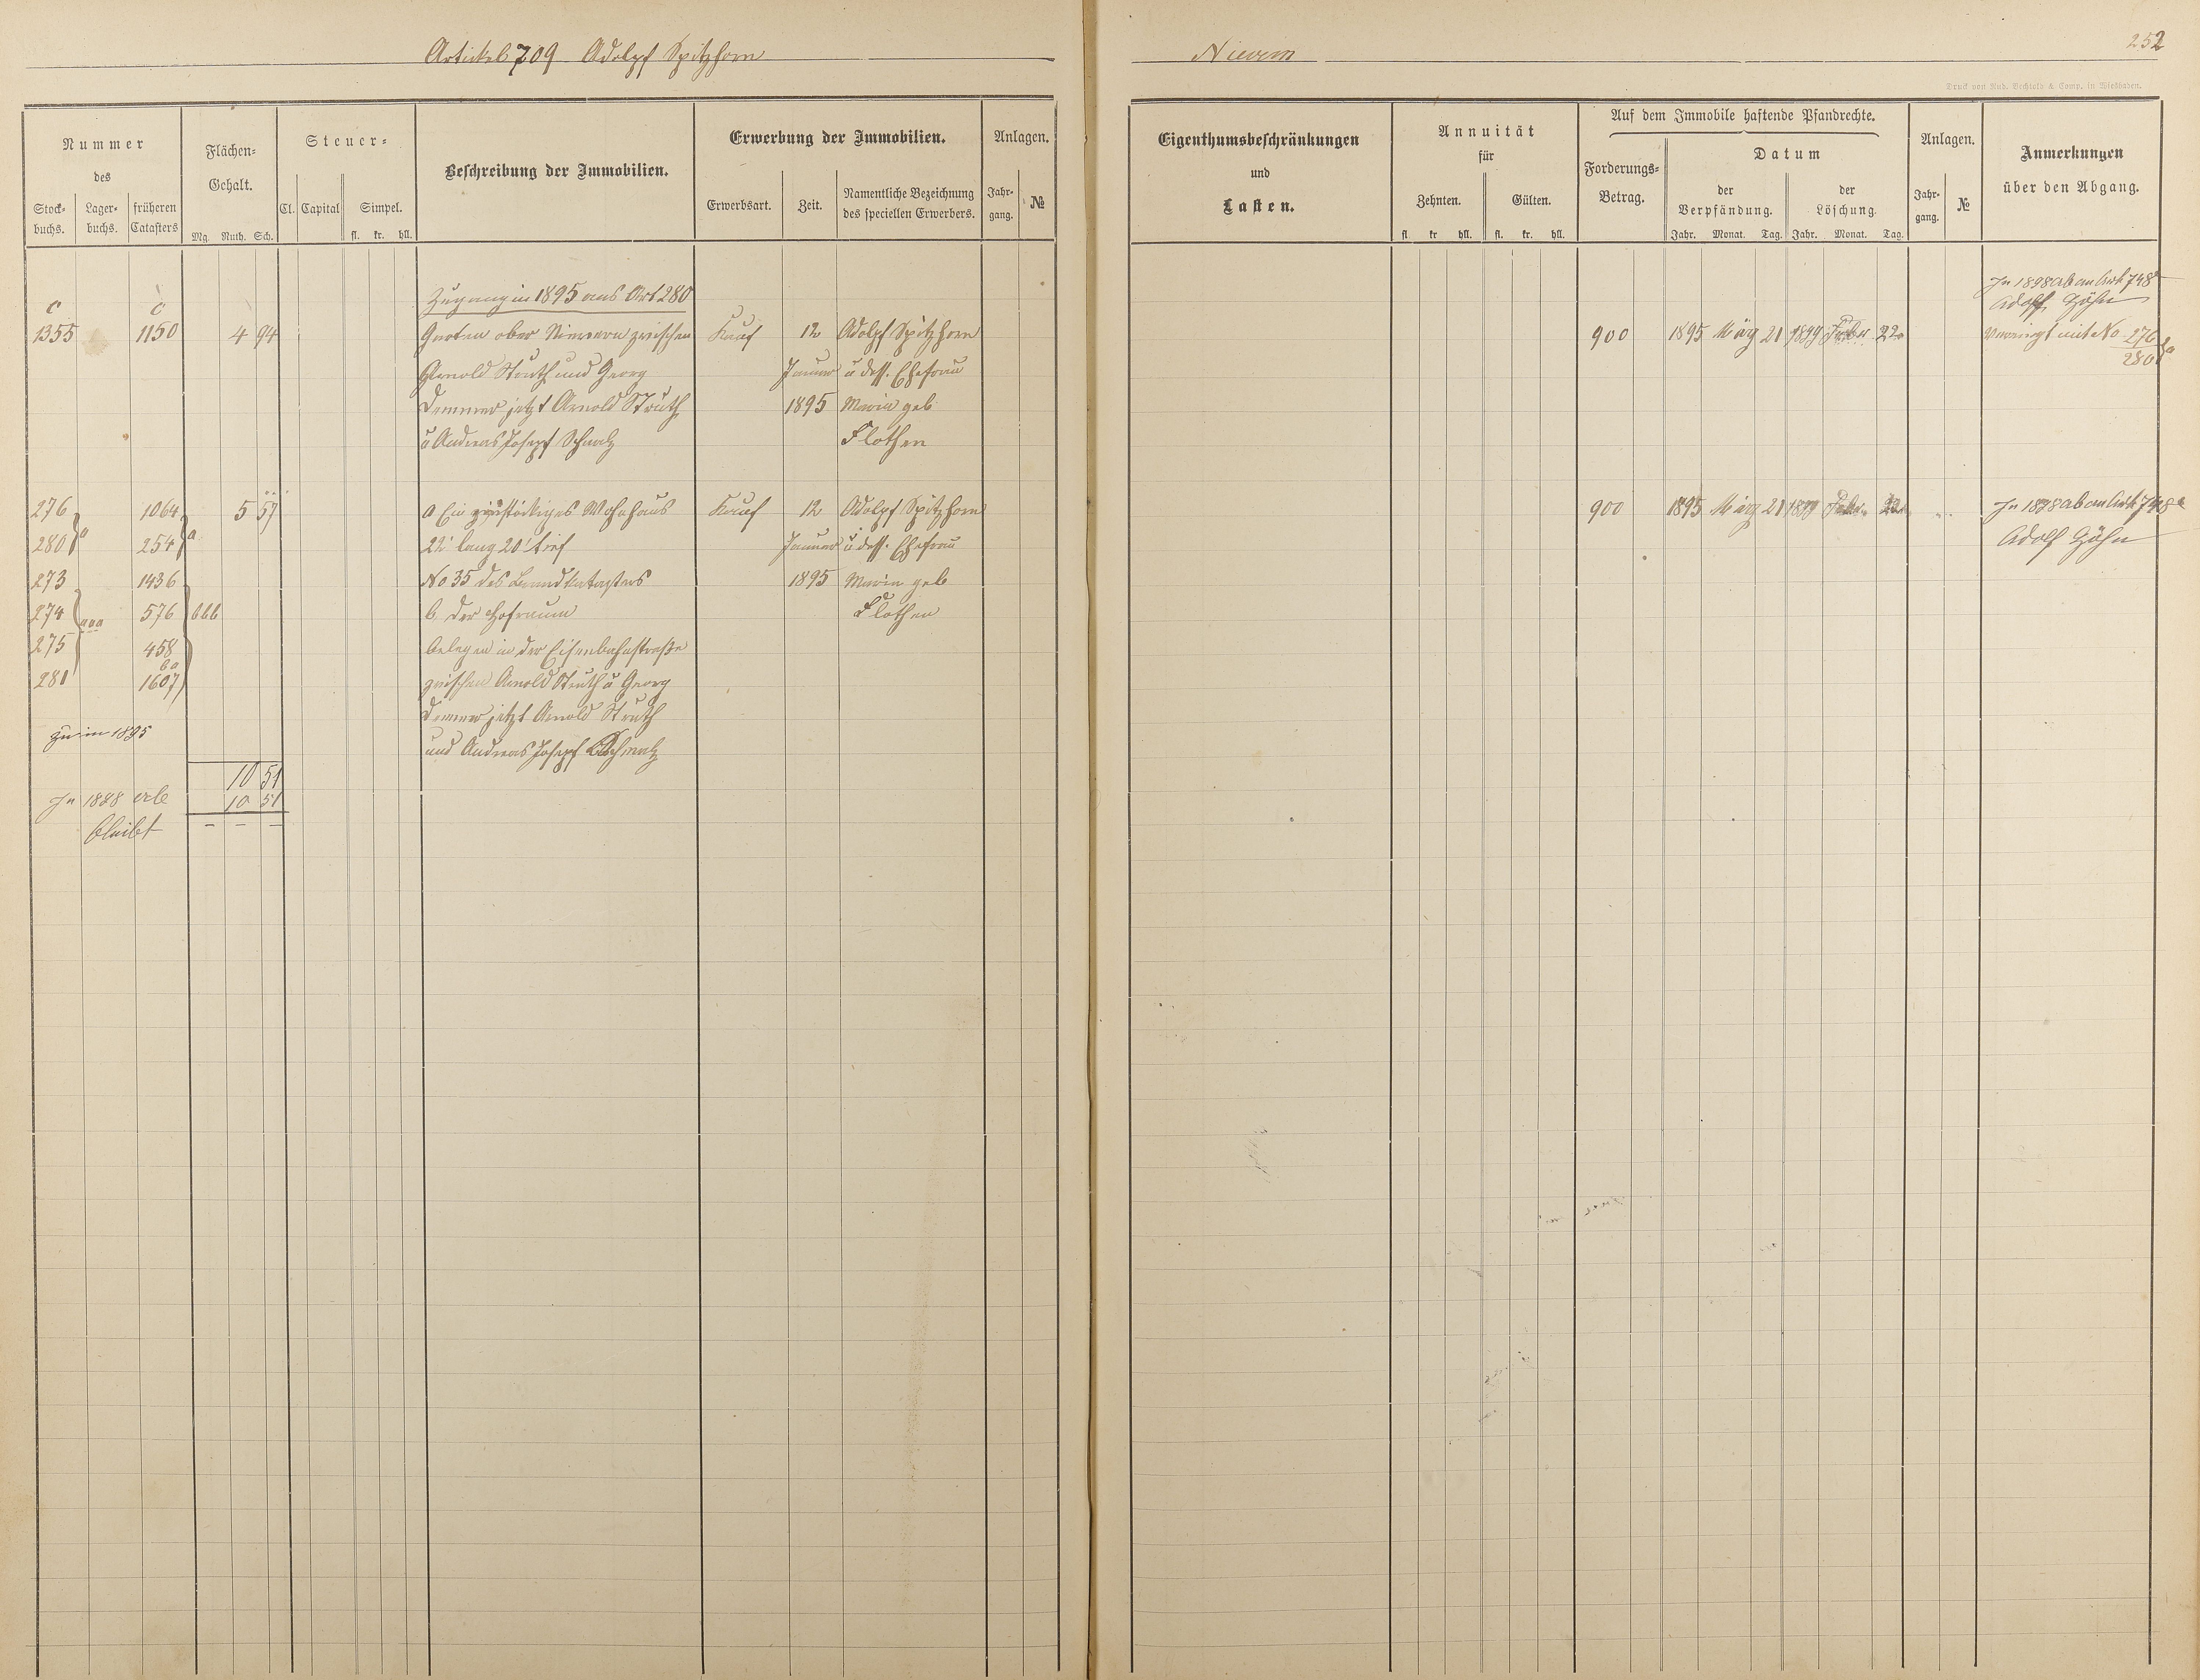 Artikel 709 Adolph Spitzhorn
Nievern
252
Druck von Rud. Bechtold & Comp. in Wiesbaden.
Nummer
des
Stock-
buchs.
Lager-
buchs.
früheren
Catasters
Flächen-
Gehalt.
Mg. Ruth. Sch.
Steuer-
Cl. Capital Simpel.
fl. kr. hll.
Beschreibung der Immobilien.
Erwerbung der Immobilien.
Erwerbsart. Zeit. Namentliche Bezeichnung
des speciellen Erwerbers.
Anlagen.
Jahr-
gang.
№
Eigenthumsbeschränkungen
und
Lasten.
Annuität
für
Zehnten. Gülten.
fl kr hll. fl. kr. hll.
Auf dem Immobile haftende Pfandrechte.
Forderungs-
Betrag.
Datum
der
Verpfändung.
der
Löschung.
Jahr. Monat. Tag. Jahr. Monat. Tag.
Anlagen.
Jahr-
gang.
№
Anmerkungen
über den Abgang.
Zugang in 1895 aus Art 280
C C
1355 1150 4 94
Garten ober Nievern zwischen
Arnold Struth und Georg
Demmer jetzt Arnold Struth
u Andreas Joseph Schmalz
Kauf
12
Januar
1895
Adolph Spitzhorn
u dess. Ehefrau
Maria geb
Flothen
900 1895 März 21 1899 Febr. 22
In 1898 ab an Art 748
Adolf Höhn
Vereinigt mit No 276
280 a
276 1064 5 57
280 a 254 a
273 1436
274 aaa 576 bbb
275 458
ba
281 1607
a Ein zweistöckiges Wohnhaus
22' lang 20' tief
No 35 des Brandkatasters
b, der Hofraum
Belegen in der Eisenbahnstraße
zwischen Arnold Struth u Georg
Demmer jetzt Arnold Struth
und Andreas Joseph Schmalz
Kauf
12
Januar
1895
Adolph Spitzhorn
u dess. Ehefrau
Maria geb
Flothen
900 1895 März 21 1899 Febr. 22
In 1898 ab an Art 748
Adolf Höhn
zu in 1895
10 51
In 1898 ab
10 51
bleibt
– – –